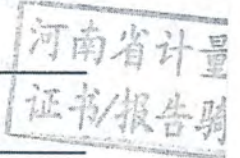 河南省计量
证书/报告骑